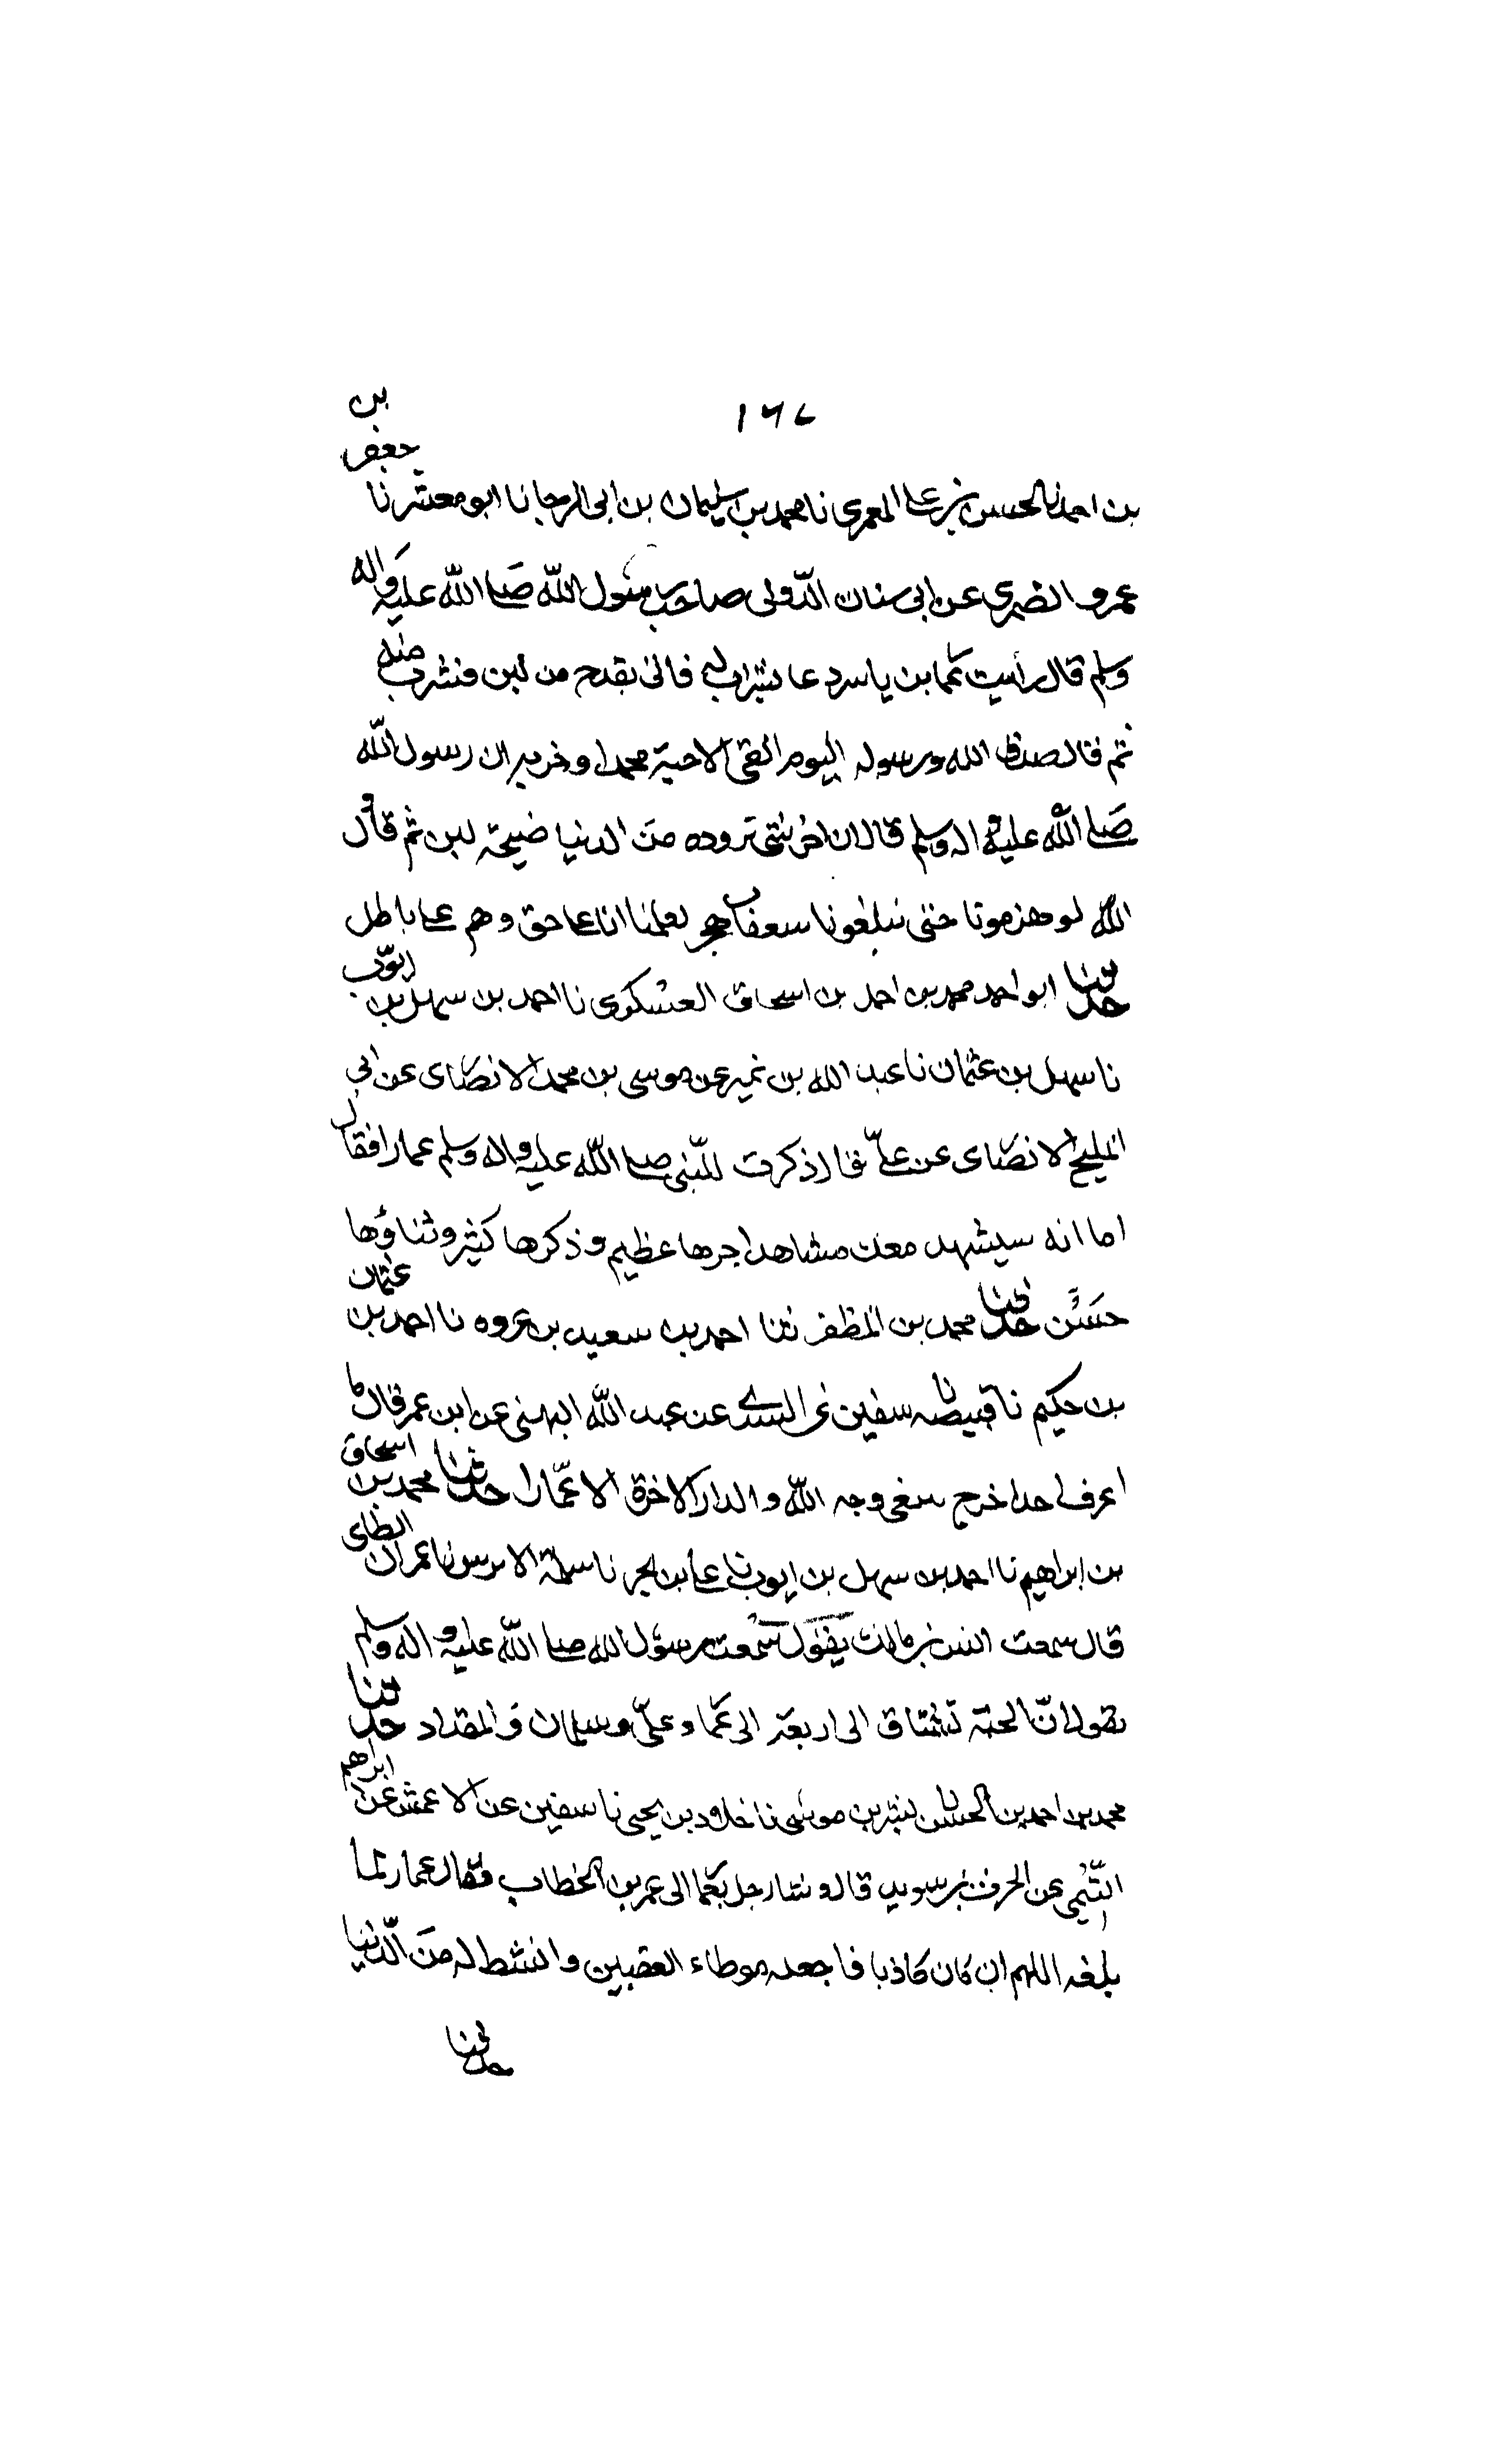 ١٦٧
بن احمد نا الحسن بن على المعمرى نا محمد بن سليمان بن ابى الرجا نا ابو معشر نا جعفر بن
عمرو الضمرى عن ابى سنان الدّولى صاحب رسول اللّه صَلى اللّه عليه واله
وسلم قال رأيت عمار بن ياسر دعا بشراب له فاتى بقدح من لبن فشرب منه
ثم قال صدق الله ورسوله اليوم القى الاحبة محمدا وحزبه ان رسول اللّه
صَلى اللّه عليه واله وسلم قال ان اخر شئ تزوده منَ الدنيا ضيحة لبن ثم قال و
اللّه لو هزمونا حتى يبلغونا سعفات هجر لعلمنا انا على حق وهم على باطل
حدثنا ابو احمد محمد بن احمد بن اسحاق العسكرى نا احمد بن سهل بن ايوّب
نا سهل بن عثمان نا عبد الله بن نمير عن موسى بن محمد الانصارى عن ابى
المليح الانصارى عن علىّ قال ذكرت للنّبى صلى اللّه عليه واله وسلم عمارا فقال
اما انه سيشهد معك مشاهد اجرها عظيم وذكرها كثير وثناؤها
حَسَن حدثنا محمد بن المظفر ثنا احمد بن سعيد بن عروه نا احمد بن عثمان
بن حكيم نا قبيصه نا سفين عن السدى عن عبد اللّه البهنى عن ابن عمر قال ما
اعرف احدا خرج يبتغى وجه اللّه والدار الاخرة الا عمّارا حدثنا محمد بن اسحاق
بن ابراهيم نا احمد بن سهل بن ايوب نا على بن بحر نا سلمة الابرس نا عمران الطاى
قال سمعت انس بن مالك يقول سمعت رسول الله صلى اللّه عليه واله وسلم
يقول انّ الجنة تشتاق الى اربعة الى عمار وعلىّ وسلمان وَالمقداد حدثنا
محمد بن احمد بن الحسن نا بشر بن موسَى نا خلاد بن يحيى نا سفين عن الاعمش عن ابراهيم
التّيمى عن الحرث بن سويد قال وشا رجل بعمار الى عمر بن الخطاب فقال عمار لما
بلغه اللهم ان كان كاذبا فاجعله موطاء العقبين وابسط له منَ الدّنيا
حدثنا